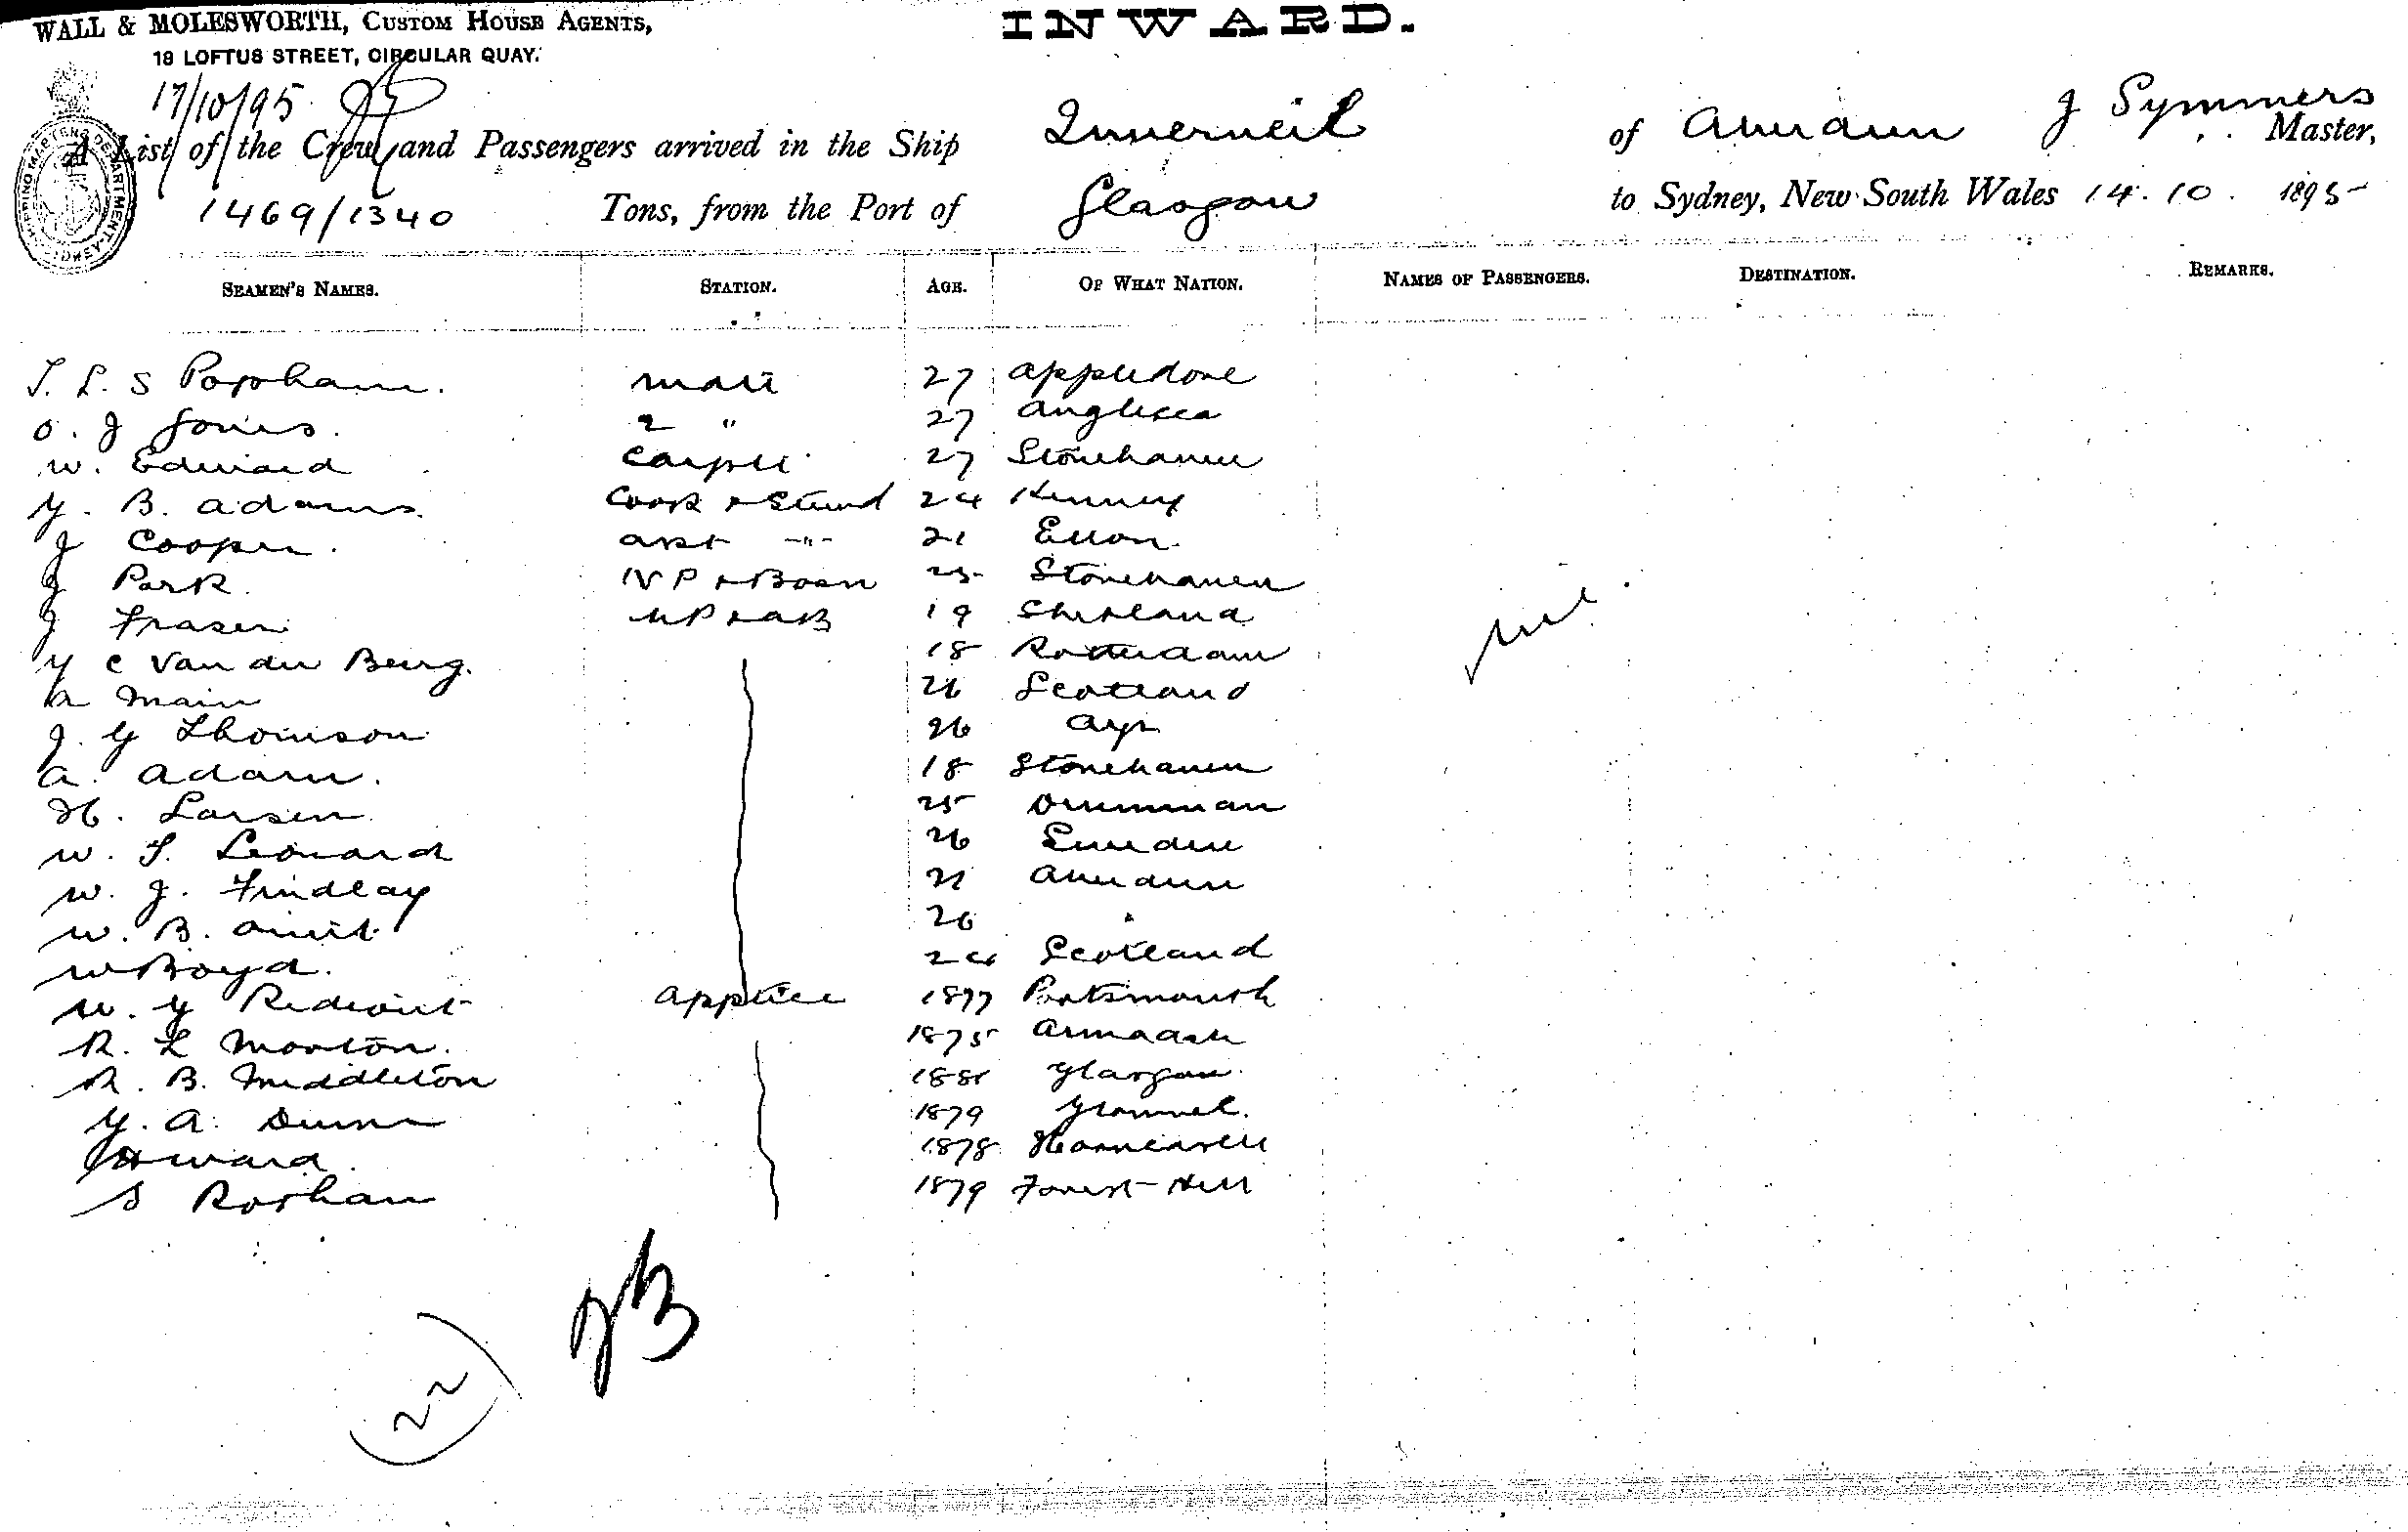 WALL & MOLESWORTH, CUSTOM HOUSE AGENTS,
19 LOFTUS STREET, CIRCULAR QUAY.
INWARD.
17/10/95
A List of the Crew and Passengers arrived in the Ship Inverneil of Aberdeen J Symmers Master,
1469/1340 Tons, from the Port of Glasgow to Sydney, New South Wales 14. 10. 1895
SEAMEN'S NAMES. STATION. AGE. OF WHAT NATION. NAMES OF PASSENGERS. DESTINATION. REMARKS.
T. L. S Popham. mate 27 Appledore
O. J Jones. 2 " 27 Anglesea
W. Edward Carptr 27 Stonehaven
G. B. Adams. Cook & Steward 24
J Cooper. asst -"- 21 Ellon.
J Park. 25 Stonehaven
J Fraser 19 Shetland
G C Van der Berg. 18 Rotterdam
A Main 26 Scotland
J. G Thomson 26 Ayr
A. Adam. 18 Stonehaven
H. Larsen 25
W. T. Leonard 26
W. J. Findlay 21 Aberdeen
W. B. 26 "
W Boyd. 24 Scotland
W. G Rideout Apptice 1877 Portsmouth
R. L Moorton. 1875 Armagh
R. B. Middleton 1881 Glasgow
G. A. Dunn 1879
Howard. 1878
S Rorham 1879 Forest Hill
nil
22